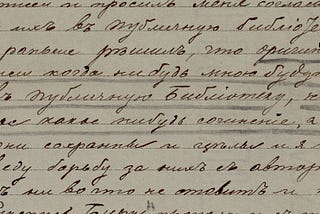 писи и просилъ меня соглас
ихъ въ публичную библіоте
раньше рѣшилъ, что ориги
когда нибудь мною буду
въ публичную Библіотеку,
какое нибудь сочиненіе, а
они сохранны и цѣлы и я
веду борьбу за нихъ съ автор
ни во что не ставитъ и